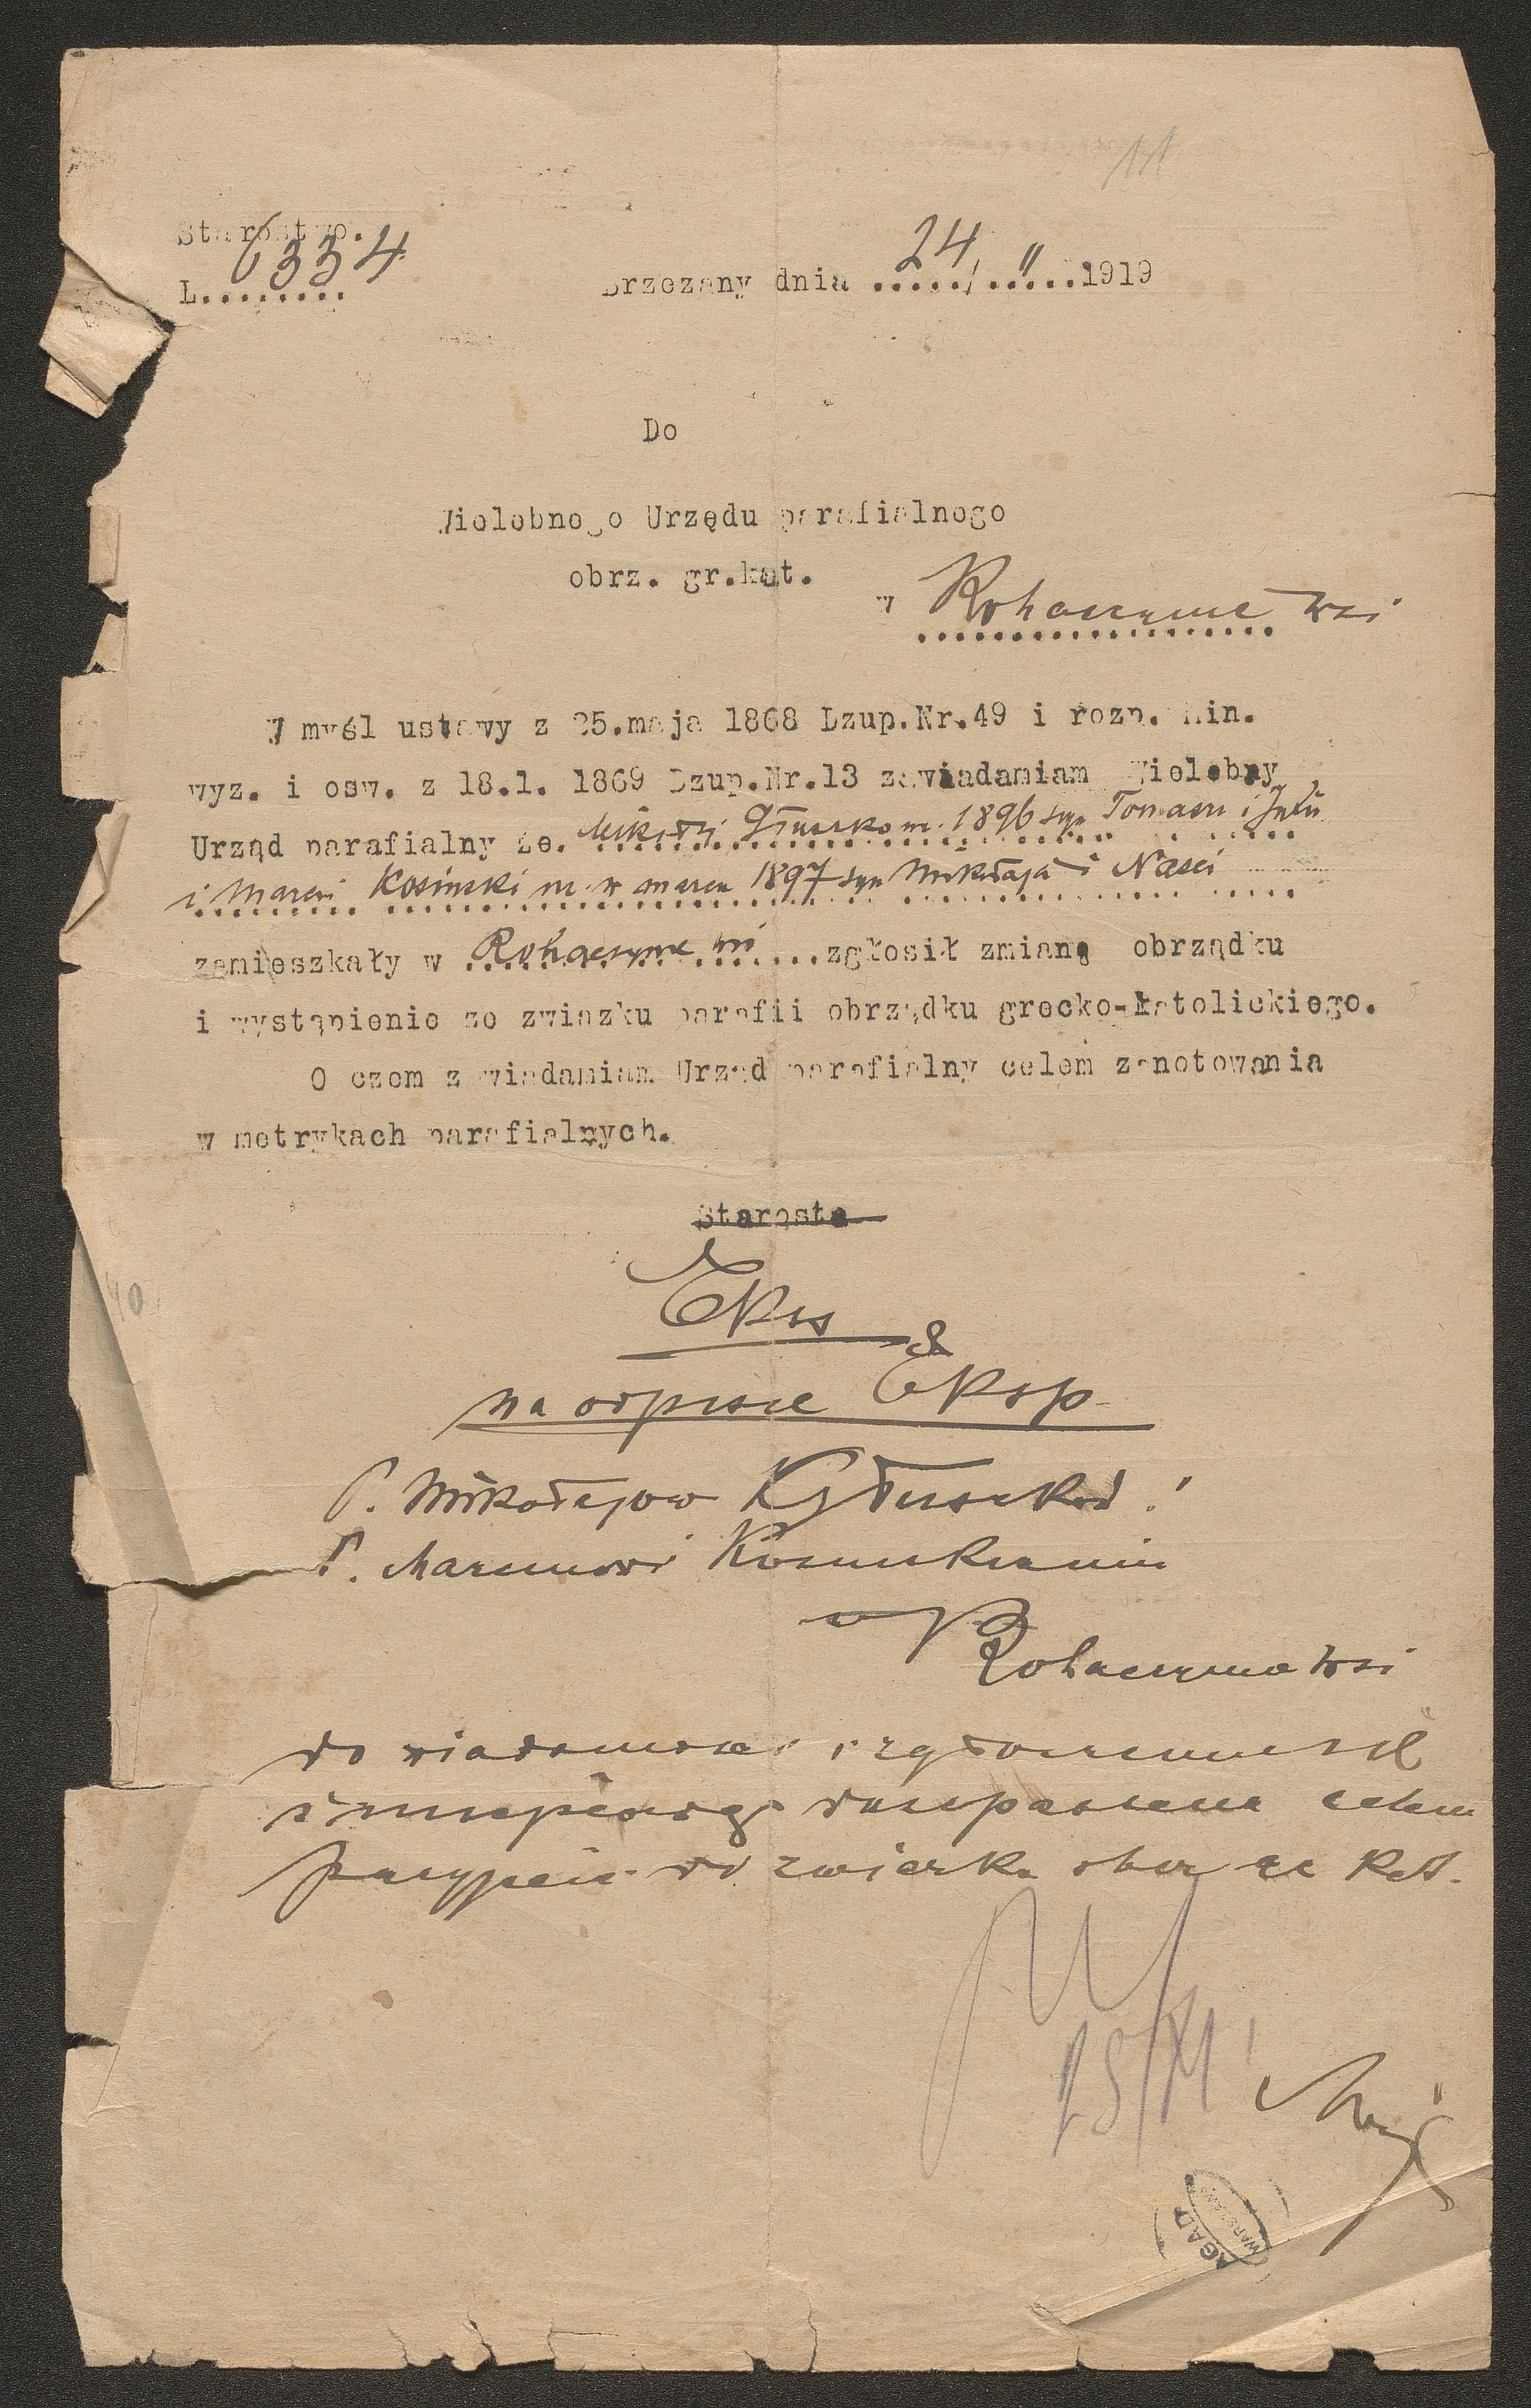 11
Starostwo.
L........ 6334
Brzezany dnia 24/11 1919
Do
Wielebnego Urzędu parafialnego
obrz. gr.kat.
w Rohaczynie wsi
W myśl ustawy z 25.maja 1868 Dzup.Nr.49 i rozp. Min.
wyz. i osw. z 18.1. 1869 Dzup.Nr.13 zawiadamiam Wielebny
Urząd parafialny że. Mikołaj 1896 syn Tomasza i Julii
i Marcin Kosinski ur. w marcu 1897 syn Mikołaja i Naści
zamieszkały w Rohaczynie wsi ....zgłosił zmianę obrządku
i wystąpienie ze związku parafii obrządku grecko-katolickiego.
O czem zawiadamiam Urząd parafialny celem zanotowania
w metrykach parafialnych.
Starosta
Eks
na odpisie Eksp.
P. Mikołajowi
P. Marcinowi Kosinskiemu
w
Rohaczynie wsi
do wiadomości i zgłoszenia się
celem
do związku obrz rz kat.
25/XI
AGAD
WARSZAWA